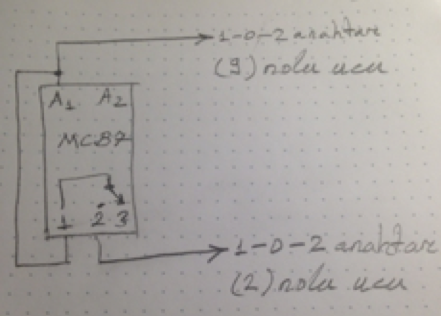 1-0-2 anahtar
(9) nolu ucu
A1 A2
MCB7
1 2 3
1-0-2 anahtar
(2) nolu ucu